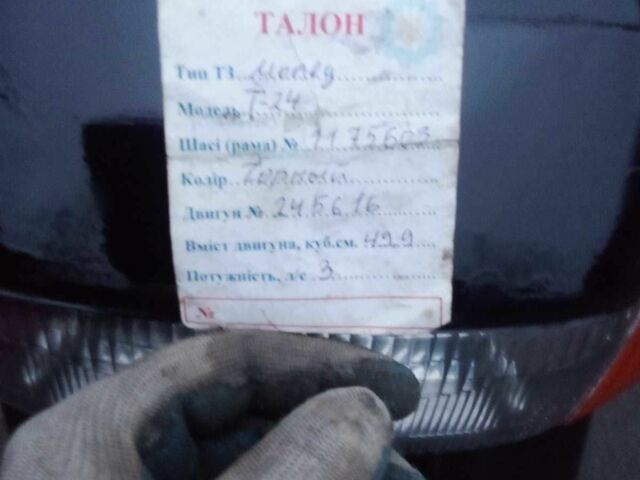 ТАЛОН
Тип ТЗ Мопед
Модель Т-24
Шасі (рама) № 1175603
Колір Чорный
Двигун № 245616
Вміст двигуна, куб.см. 49,9
Потужність, л/с 3
№